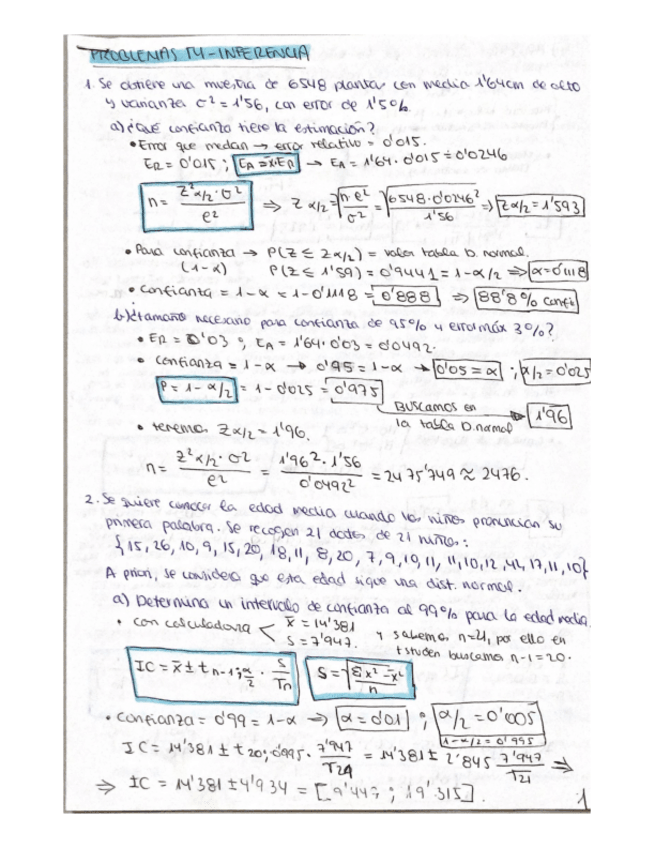 PROBLEMAS T4 - INFERENCIA
1. Se obtiene una muestra de 6548 plantas con media 1'64cm de alto
y varianza σ² = 1'56, con error de 1'5%.
a) ¿Qué confianza tiene la estimación?
• Error que me dan → error relativo = 0'015.
ER = 0'015 ; EA = x̄·ER → EA = 1'64 · 0'015 = 0'0246
n = Z²α/2 · σ² / e² ⇒ Zα/2 = √(n·e² / σ²) = √(6548·0'0246² / 1'56) ⇒ Zα/2 = 1'593
• Para confianza → P(Z ≤ Zα/2) = valor tabla D. normal.
(1-α) P(Z ≤ 1'59) = 0'9441 = 1-α/2 ⇒ α = 0'1118
• confianza = 1-α = 1-0'1118 = 0'888 ⇒ 88'8% confi
b) ¿tamaño necesario para confianza de 95% y error máx 3%?
• ER = 0'03 ; EA = 1'64·0'03 = 0'0492.
• confianza = 1-α → 0'95 = 1-α → 0'05 = α ; α/2 = 0'025
P = 1-α/2 = 1-0'025 = 0'975
Buscamos en la tabla D.normal → 1'96
• tenemos Zα/2 = 1'96.
n = Z²α/2 · σ² / e² = 1'96² · 1'56 / 0'0492² = 2475'749 ≈ 2476.
2. Se quiere conocer la edad media cuando los niños pronuncian su
primera palabra. Se recogen 21 datos de 21 niños:
{15, 26, 10, 9, 15, 20, 18, 11, 8, 20, 7, 9, 10, 11, 11, 10, 12, 42, 17, 11, 10}
A priori, se considera que esta edad sigue una dist. normal.
a) Determina un intervalo de confianza al 99% para la edad media
• con calculadora < x̄ = 14'381
S = 7'947. y sabemos n=21, por ello en
t student buscamos n-1 = 20.
IC = x̄ ± t n-1; α/2 · S/√n S = √(Σx² - x̄² / n)
• confianza = 0'99 = 1-α ⇒ α = 0'01 ; α/2 = 0'005
1-α/2 = 0'995
IC = 14'381 ± t 20;0'995 · 7'947/√21 = 14'381 ± 2'845 7'947/√21 ⇒
⇒ IC = 14'381 ± 4'934 = [9'447 ; 19'315].
1